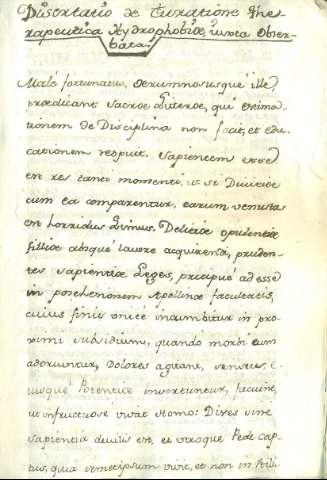 Dissertatio de Curatione The-
rapeutica Hydrophobiæ, iuxta Obser-
bata.
Malé fortunatus, Ærumnosusque ille,
prædicant Sacræ Literæ, qui estima-
tionem de Disciplina non facit, et edu-
cationem respuit. Sapientem esse
est res tanti momenti, ut si Divitiæ
cum ea comparentur, earum venustas
est horridus Limus. Delitiæ opulentæ
absque lavore
sapientiæ Leges, præcipué adesse
in Apollinæ facultatis,
cuius finis unicé incumbitur in pro-
ximi subsidium, quando morbi eum
adoriuntur, Dolores agitant, sensus, e-
iusque Potentiæ invertuntur,
ut infructuose vivat Homo: Dives sine
sapientia devilis est, et utroque Pede cap-
tus, quia semetipsum vivit, et non in